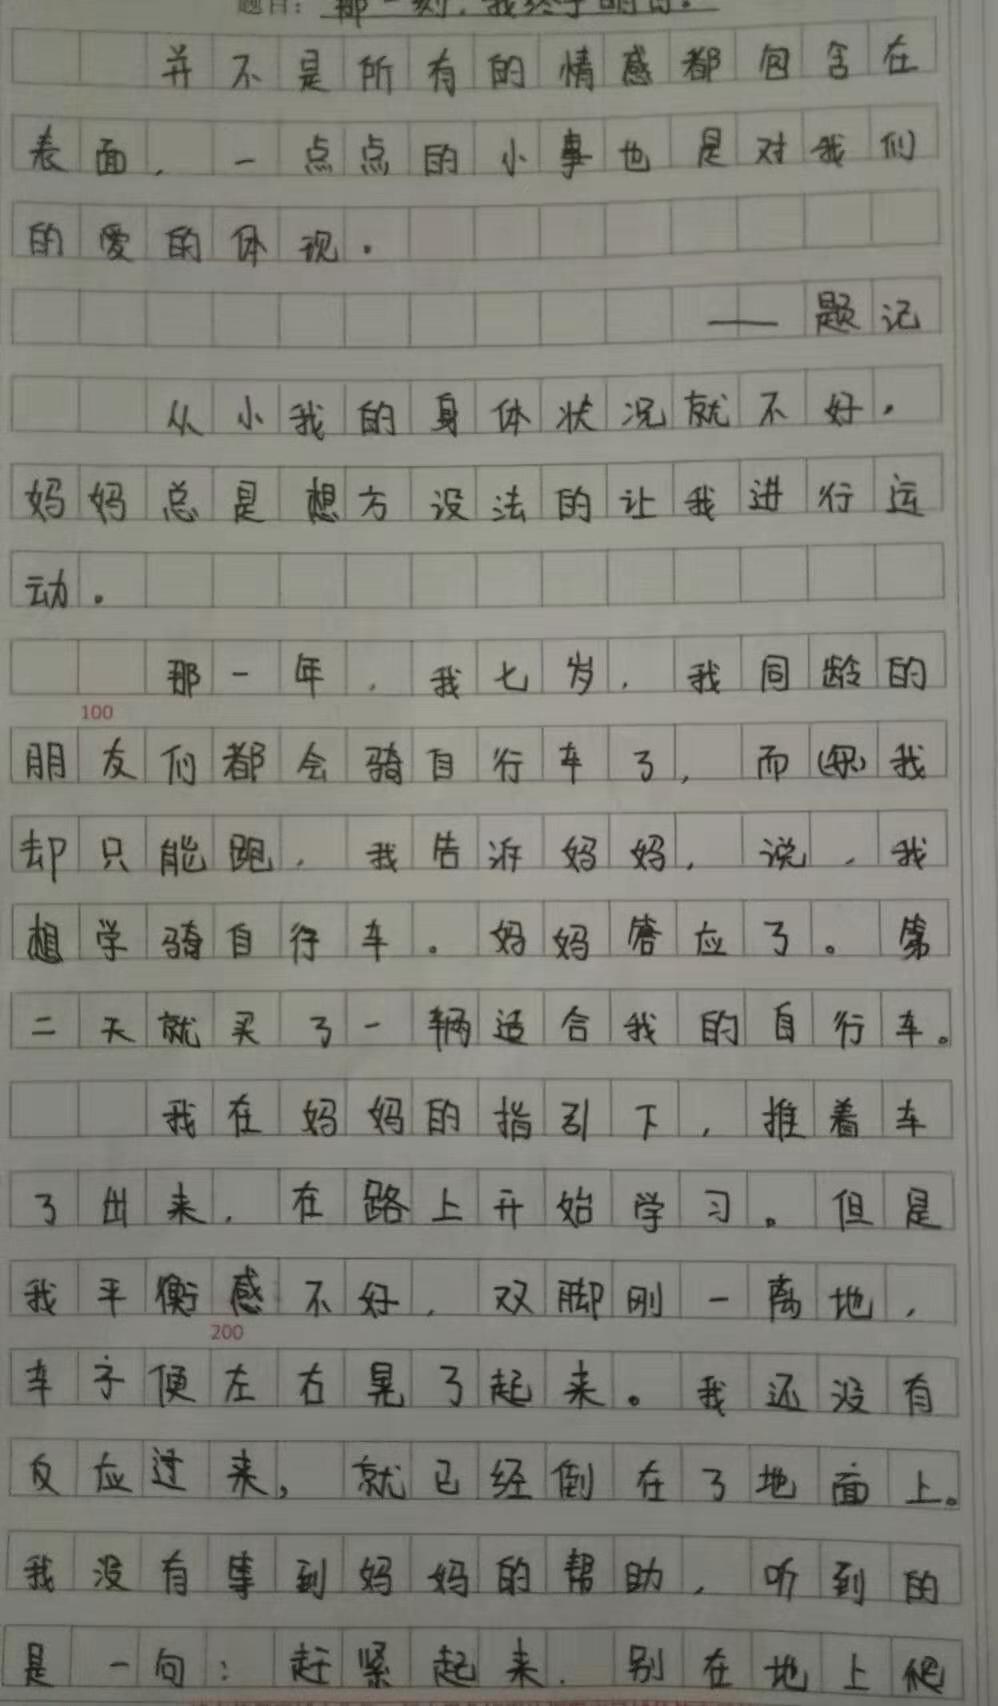 题目：那一刻，我终于明白。
并不是所有的情感都包含在
表面，一点点的小事也是对我们
的爱的体现。
——题记
从小我的身体状况就不好，
妈妈总是想方没法的让我进行运
动。
那一年，我七岁，我同龄的
朋友们都会骑自行车了，而我
却只能跑，我告诉妈妈，说，我
想学骑自行车。妈妈答应了。第
二天就买了一辆适合我的自行车。
我在妈妈的指引下，推着车
了出来，在路上开始学习。但是
我平衡感不好，双脚刚一离地，
100
车子便左右晃了起来。我还没有
200
反应过来，就已经倒在了地面上。
我没有等到妈妈的帮助，听到的
是一句：赶紧起来，别在地上爬